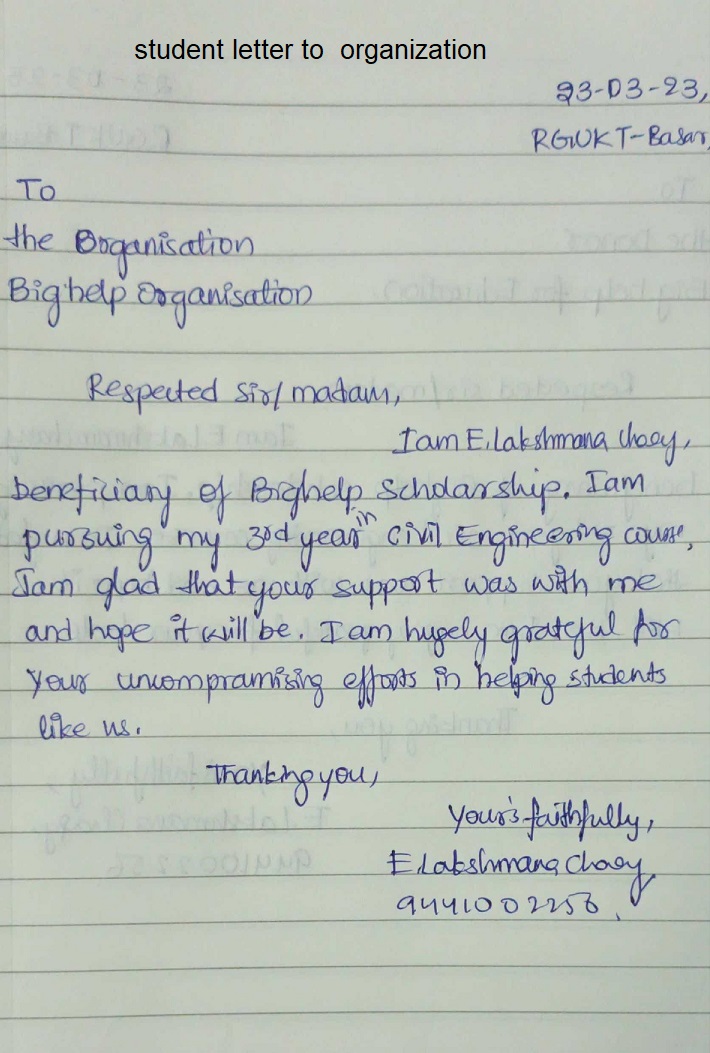 student letter to organization
23-03-23,
RGUKT-Basar,
To
the Organisation
Bighelp Organisation
Respected sir/madam,
I am E.lakshmana chary,
beneficiary of Bighelp scholarship. I am
pursuing my 3rd year in civil Engineering course,
I am glad that your support was with me
and hope it will be. I am hugely grateful for
your uncompramising efforts in helping students
like us.
Thanking you,
Your's faithfully,
E.lakshmana chary
9441002256.